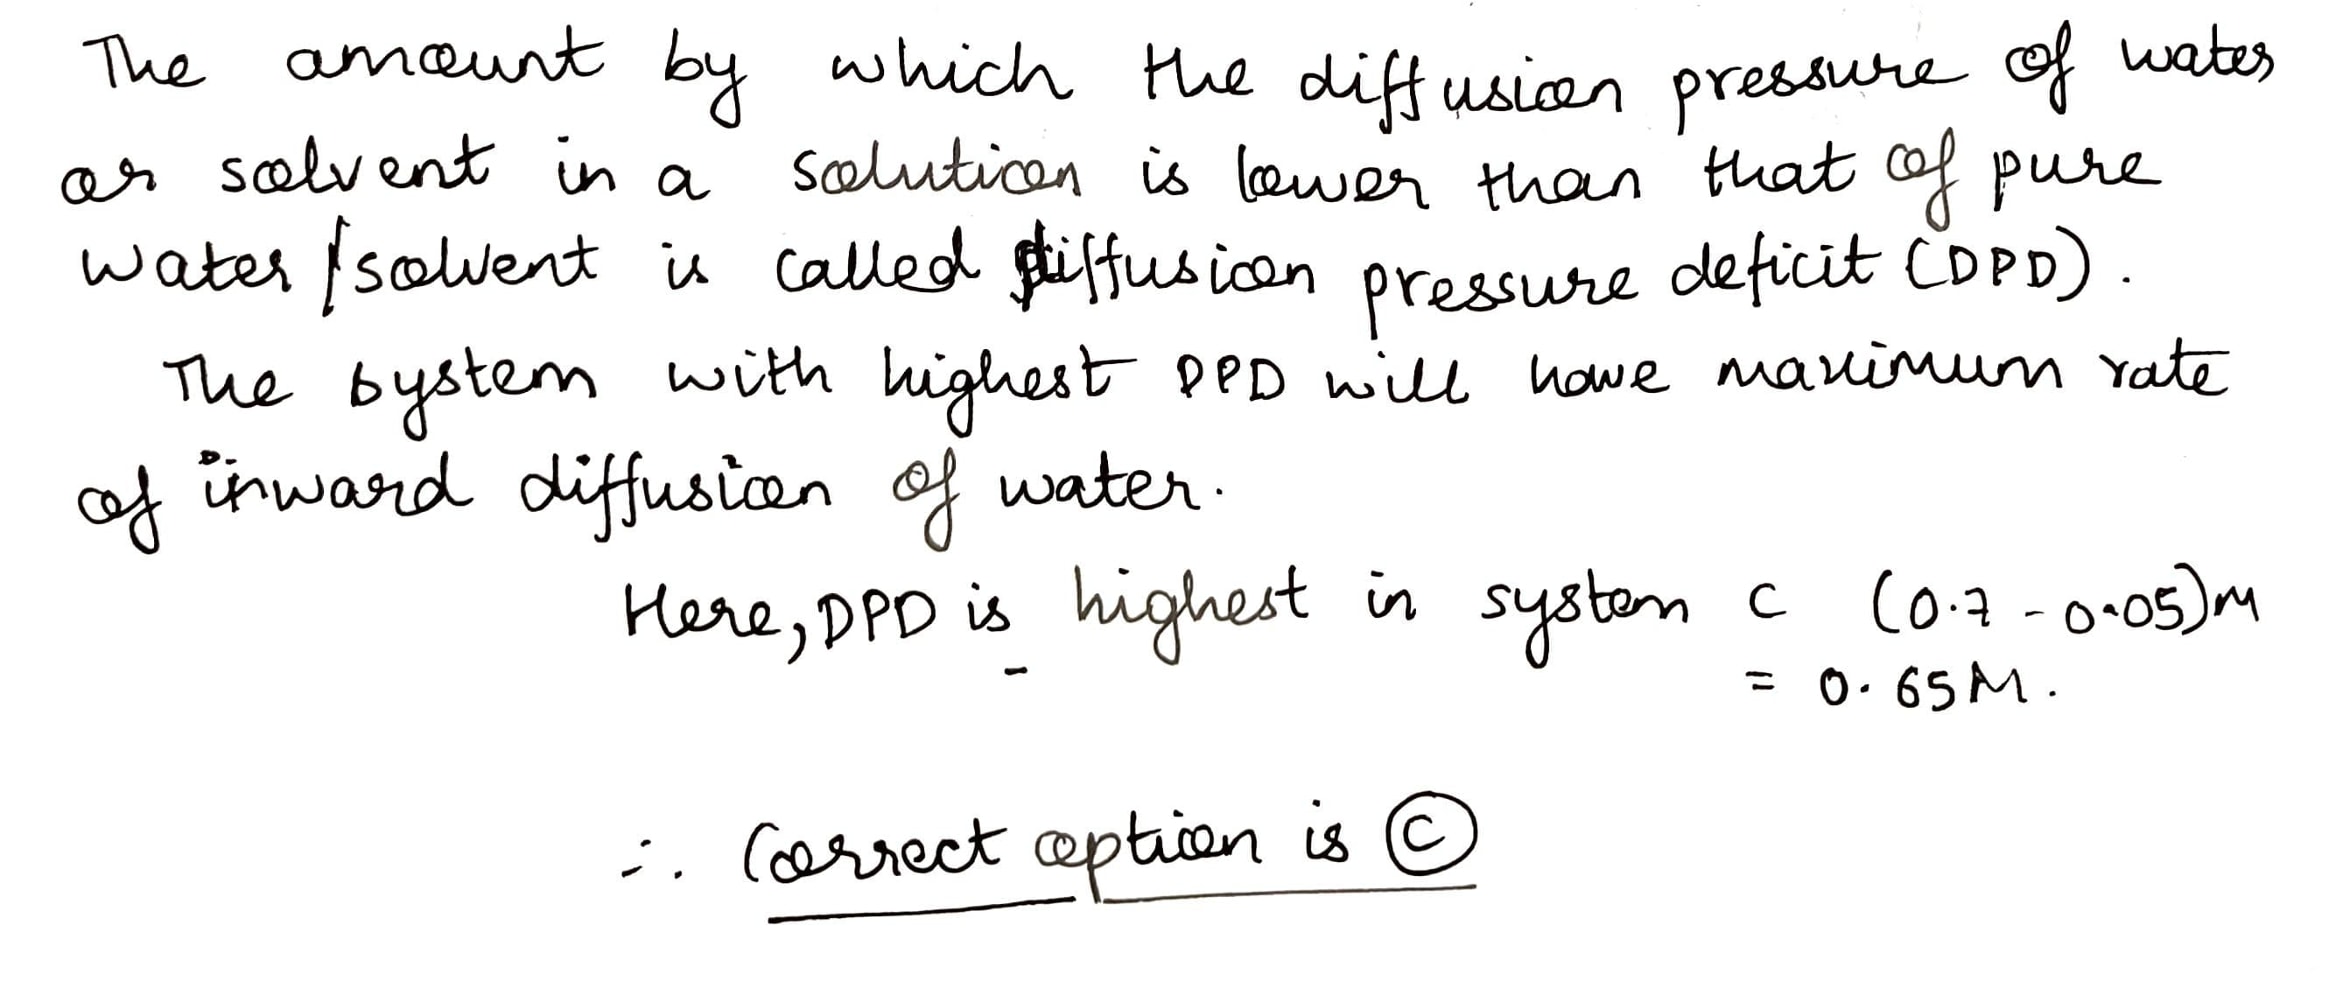 The amount by which the diffusion pressure of water
or solvent in a solution is lower than that of pure
water/solvent is called diffusion pressure deficit (DPD).
The system with highest DPD will have maximum rate
of inward diffusion of water.
Here, DPD is highest in system C (0.7 - 0.05)M
= 0.65M.
∴ Correct option is Ⓒ